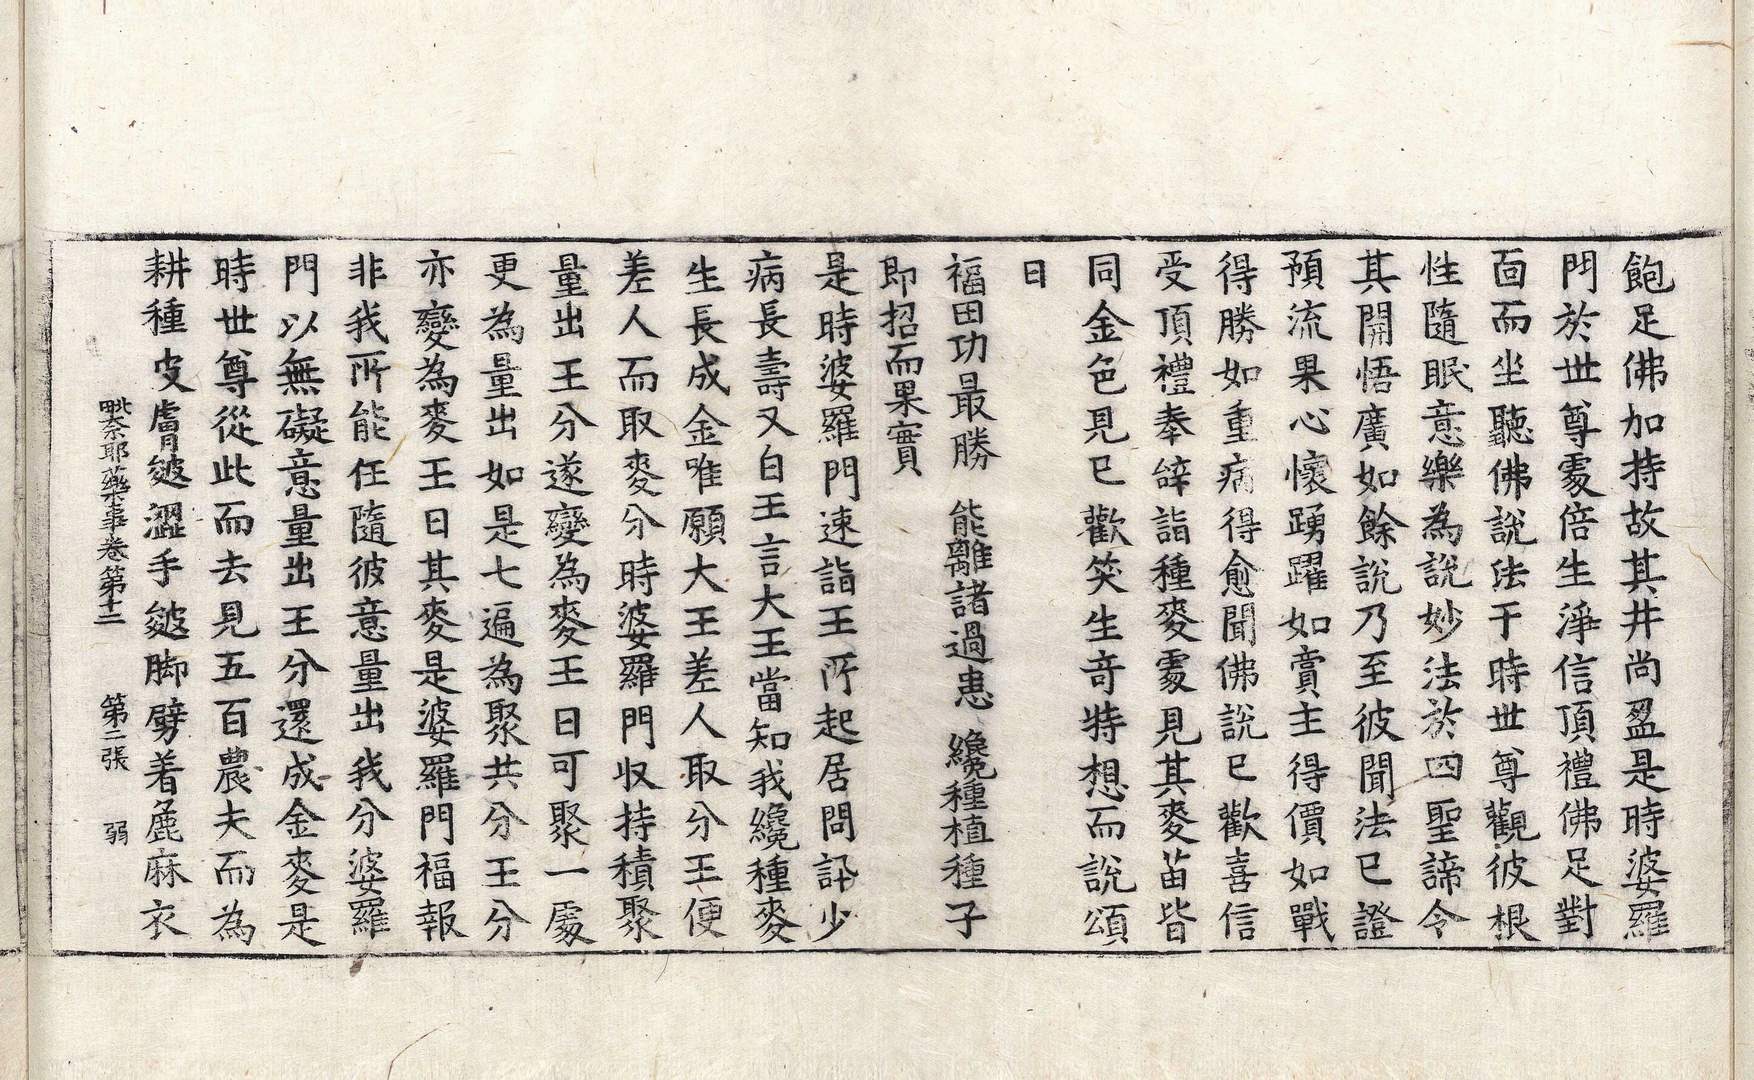 飽足佛加持故其井尚盈是時婆羅
門於世尊處倍生淨信頂禮佛足對
面而坐聽佛說法于時世尊觀彼根
性隨眠意樂為說妙法於四聖諦令
其開悟廣如餘說乃至彼聞法已證
預流果心懷踴躍如賣主得價如戰
得勝如重病得愈聞佛說已歡喜信
受頂禮奉辭詣種麥處見其麥苗皆
同金色見已歡笑生奇特想而說頌
曰
福田功最勝　能離諸過患　纔種植種子
即招而果實
是時婆羅門速詣王所起居問訊少
病長壽又白王言大王當知我纔種麥
生長成金唯願大王差人取分王便
差人而取麥分時婆羅門收持積聚
量出王分遂變為麥王曰可聚一處
更為量出如是七遍為聚共分王分
亦變為麥王曰其麥是婆羅門福報
非我所能任隨彼意量出我分婆羅
門以無礙意量出王分還成金麥是
時世尊從此而去見五百農夫而為
耕種皮膚皴澀手皴脚劈着麁麻衣
毗奈耶藥事卷第十二　第二張　弱